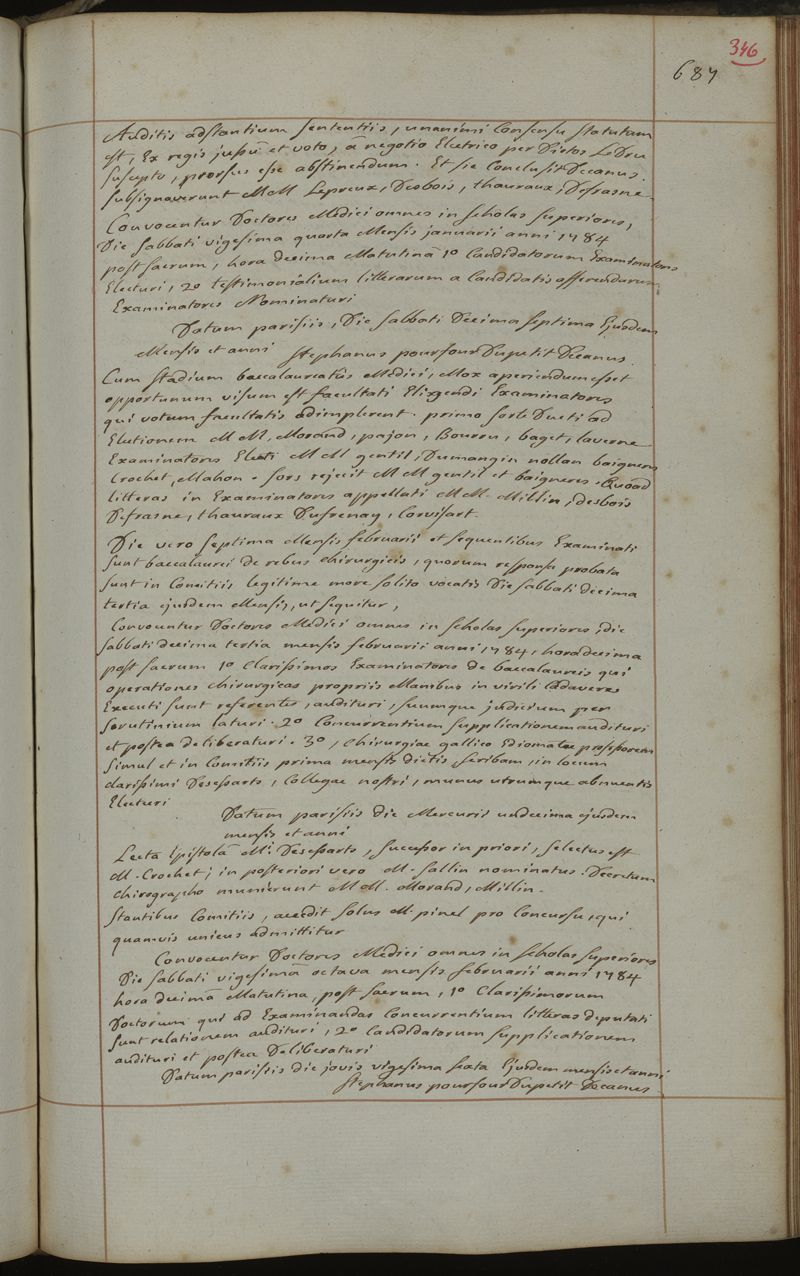 346
687
Auditis adstantium sententiis, unanimi Consensu statutum
est, Ex regis jussû et voto, â negotio Electrico per Dictos LeDru
suscepto, prorsus esse abstinendum. Et sic Conclusit Decanus.
subsignaverunt MM Lepreux, Desbois, thauraux, Defrasne.
Convocentur Doctores Medici omnes in scholas superiores,
Die sabbati vigesima quarta Mensis januarii anni 1784
post sacrum, hora decima Matutinâ 1o Candidatorum Examinatores
Electuri, 2o testimonialium litterarum a Candidatis afferendarum
Examinatores Nominaturi
Datum parisiis, Die sabbati Decima septima Ejusdem
Mensis et anni stephanus pourfour Dupetit Decanus.
Cum stadium baccalaureatûs Medici, Mox aperiendum esset
opportunum visum est facultati Eligendi Examinatores
qui votum facultatis adimplerent. primo sorte Ducti ad
Electionem MM. Morand, pajon, Bourru, baget, laverne
Examinatores Electi MM gentil, Dumangin nollan baigneres
Crochet, Mahon. sors rejecit MM gentil et baigneres. Quoad
litteras in Examinatores appellati MM. Millin, desbois
Defrasne, thauraux Dufrenay, Corvisart.
Die vero septima Mensis februarii et sequentibus Examinati
sunt baccalaurei de rebus chirurgicis, quorum responsa probata
sunt in Comitiis legitime more solito vocatis Die sabbati decima
tertia ejusdem Mensis, ut sequitur,
Convocentur Doctores Medici omnes in scholas superiores, die
sabbati decima tertia mensis februarii anni 1784, hora decima
post sacrum 1o Clarissimos Examinatores de baccalaureis qui
operationes chirurgicas propriis Manibus in virili Cadavere
Executi sunt referentes, audituri, suumque judicium per
scrutinium laturi. 2o Concurrentium supplicationem audituri
et postea deliberaturi. 3o, Chirurgiae gallico Ediomate professorem
simul et in Comitiis prima mensis dictis scribam, in locum
clarissimi Desessarts, Collegae nostri, munus utrumque abnuentis
Electuri
Datum parisiis die Mercurii undecima ejusdem
mensis et anni
Lectâ Epistolâ Mi. Desessarts, successor in priori, selectus est
M. Crochet; in posteriori vero M. sallin nominatus. Decretum
chirographo munierunt MM. Morand, Millin.
Stantibus Comitiis, accedit solus M. pinel pro Concursu, qui
quamvis unicus admittitur
Convocentur Doctores Medici omnes in scholas superiores
Die sabbati vigesimâ octava mensis februarii anni 1784
hora decimâ Matutina, post sacrum, 1o Clarissimorum
Doctorum qui ad Examinandas Concurrentium litteras deputati
sunt relationem audituri, 2o Candidatorum supplicationem
audituri et postea Deliberaturi
Datum parisiis die jovis vigesima sexta Ejusdem mensis et anni
stephanus pourfour Dupetit Decanus